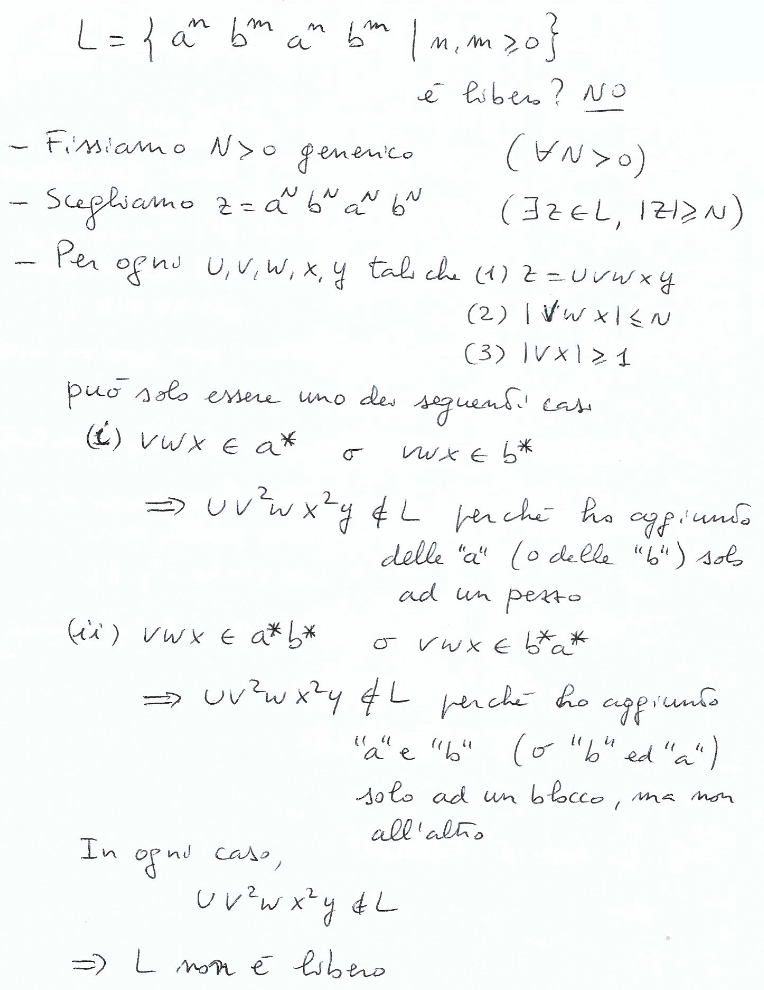 L = { aⁿ bᵐ aⁿ bᵐ | n, m ≥ 0 }
è libero? NO
- Fissiamo N > 0 generico (∀N > 0)
- Scegliamo z = aᴺ bᴺ aᴺ bᴺ (∃z ∈ L, |z| ≥ N)
- Per ogni u, v, w, x, y tali che (1) z = uvwxy
(2) |vwx| ≤ N
(3) |vx| ≥ 1
può solo essere uno dei seguenti casi
(i) vwx ∈ a* o vwx ∈ b*
⇒ uv²wx²y ∉ L perché ho aggiunto
delle "a" (o delle "b") solo
ad un pezzo
(ii) vwx ∈ a*b* o vwx ∈ b*a*
⇒ uv²wx²y ∉ L perché ho aggiunto
"a" e "b" (o "b" ed "a")
solo ad un blocco, ma non
all'altro
In ogni caso,
uv²wx²y ∉ L
⇒ L non è libero